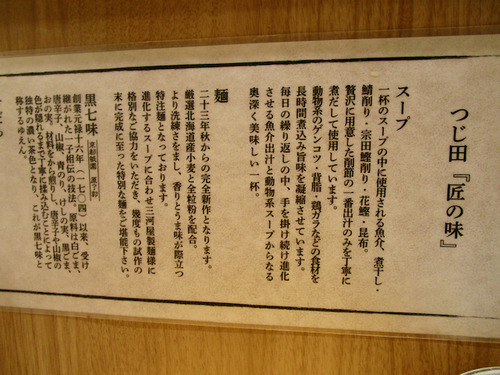 つじ田『匠の味』
スープ
一杯のスープの中に使用される魚介、煮干し・
鯖削り・宗田鰹削り・花鰹・昆布。
贅沢に用意した削節の一番出汁のみを丁寧に
煮だして使用しています。
動物系のゲンコツ・背脂・鶏ガラなどの食材を
長時間煮込み旨味を凝縮させています。
毎日の繰り返しの中、手を掛け続け進化
させる魚介出汁と動物系スープからなる
奥深く美味しい一杯。
麺
二十三年秋からの完全新作となります。
厳選北海道産小麦と全粒粉を配合。
より洗練さをまし、香りとうま味が際立つ
特注麺となっております。
進化するスープに合わせ三河屋製麺様に
格別なご協力をいただき、幾度もの試作の
末に完成に至った特別な麺をご堪能下さい。
黒七味 京都祇園 原了郭
創業元禄十六年（一七〇四）以来、受け
継がれた一子相伝の技法。原料は白ごま、
唐辛子、山椒、青のり、けしの実、黒ごま、
おの実。材料をから煎りし、唐辛子や山椒の
色が隠れるまで丁寧に揉み込むことによって
独特の濃い茶色となり、これが黒七味と
称するゆえん。